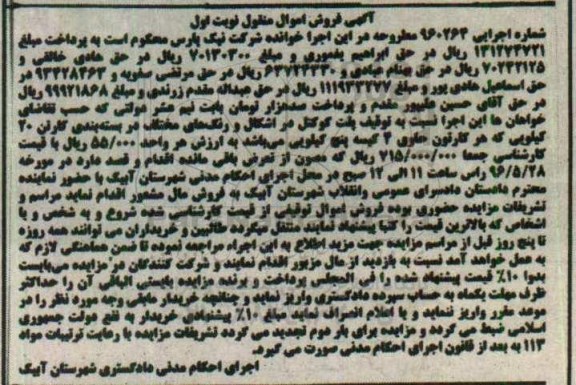 آگهی فروش اموال منقول نوبت اول
شماره اجرایی ۹۶۰۲۶۳ مطروحه در این اجرا خوانده شرکت نیک پارس محکوم است به پرداخت مبلغ
۱۳۱۲۷۴۷۲۱ ریال در حق ابراهیم یغموری و مبلغ ۷۰۱۳۰۳۰۰ ریال در حق هادی خالقی و
۷۰۲۴۲۱۲۵ ریال در حق بهنام عبادی و ۶۳۷۲۴۳۳۰ ریال در حق مرتضی صفویه و ۹۳۳۲۸۴۶۳ در
حق اسماعیل هادی پور و مبلغ ۱۱۱۹۳۳۲۷۷ ریال در حق عبداله مقدم زرندی و مبلغ ۹۹۹۲۱۸۶۸ ریال
در حق آقای حسین علیپور مقدم و پرداخت صدهزار تومان بابت نیم عشر دولتی که حسب تقاضای
خواهان ها این اجرا نسبت به توقیف پفت کوکتل در اشکال و رنگ‌های مختلف در بسته‌بندی کارتن ۲۰
کیلویی که هر کارتون حاوی ۴ کیسه پنج کیلویی می‌باشد به ارزش هر واحد ۵۵/۰۰۰ ریال با قیمت
کارشناسی جمعا ۷۱۵/۰۰۰/۰۰۰ ریال که مصون از تعرض باقی مانده اقدام و قصد دارد در مورخه
۹۶/۵/۲۸ راس ساعت ۱۱ الی ۱۲ صبح در محل اجرای احکام مدنی شهرستان آبیک با حضور نماینده
محترم دادستان دادسرای عمومی وانقلاب شهرستان آبیک به فروش مال مشعور اقدام نماید مراسم و
تشریفات مزایده حضوری بوده فروش اموال توقیفی از قیمت کارشناسی شده شروع و به شخص و یا
اشخاص که بالاترین قیمت را کتبا پیشنهاد نمایند منتقل میگردد طالبین و خریداران می توانند همه روزه
تا پنج روز قبل از مراسم مزایده جهت مزید اطلاع به این اجراء مراجعه نموده تا ضمن هماهنگی لازم که
به عمل خواهد آمد نسبت به بازدید از مال مزبور اقدام نمایند و شرکت کنندگان در مزایده می‌بایست
بدوا ۱۰٪ قیمت پیشنهاد شده را فی المجلس پرداخت و برنده مزایده بایستی الباقی آن را حداکثر
ظرف مهلت یکماه به حساب سپرده دادگستری واریز نماید و چنانچه خریدار مابقی وجه مورد نظر را در
موعد مقرر واریز ننماید و یا اعلام انصراف نماید مبلغ ۱۰٪ پیشنهادی خریدار به نفع دولت جمهوری
اسلامی ضبط می گردد و مزایده برای بار دوم تجدید می گردد تشریفات مزایده با رعایت ترتیبات مواد
۱۱۳ به بعد از قانون اجرای احکام مدنی صورت می گیرد.
اجرای احکام مدنی دادگستری شهرستان آبیک